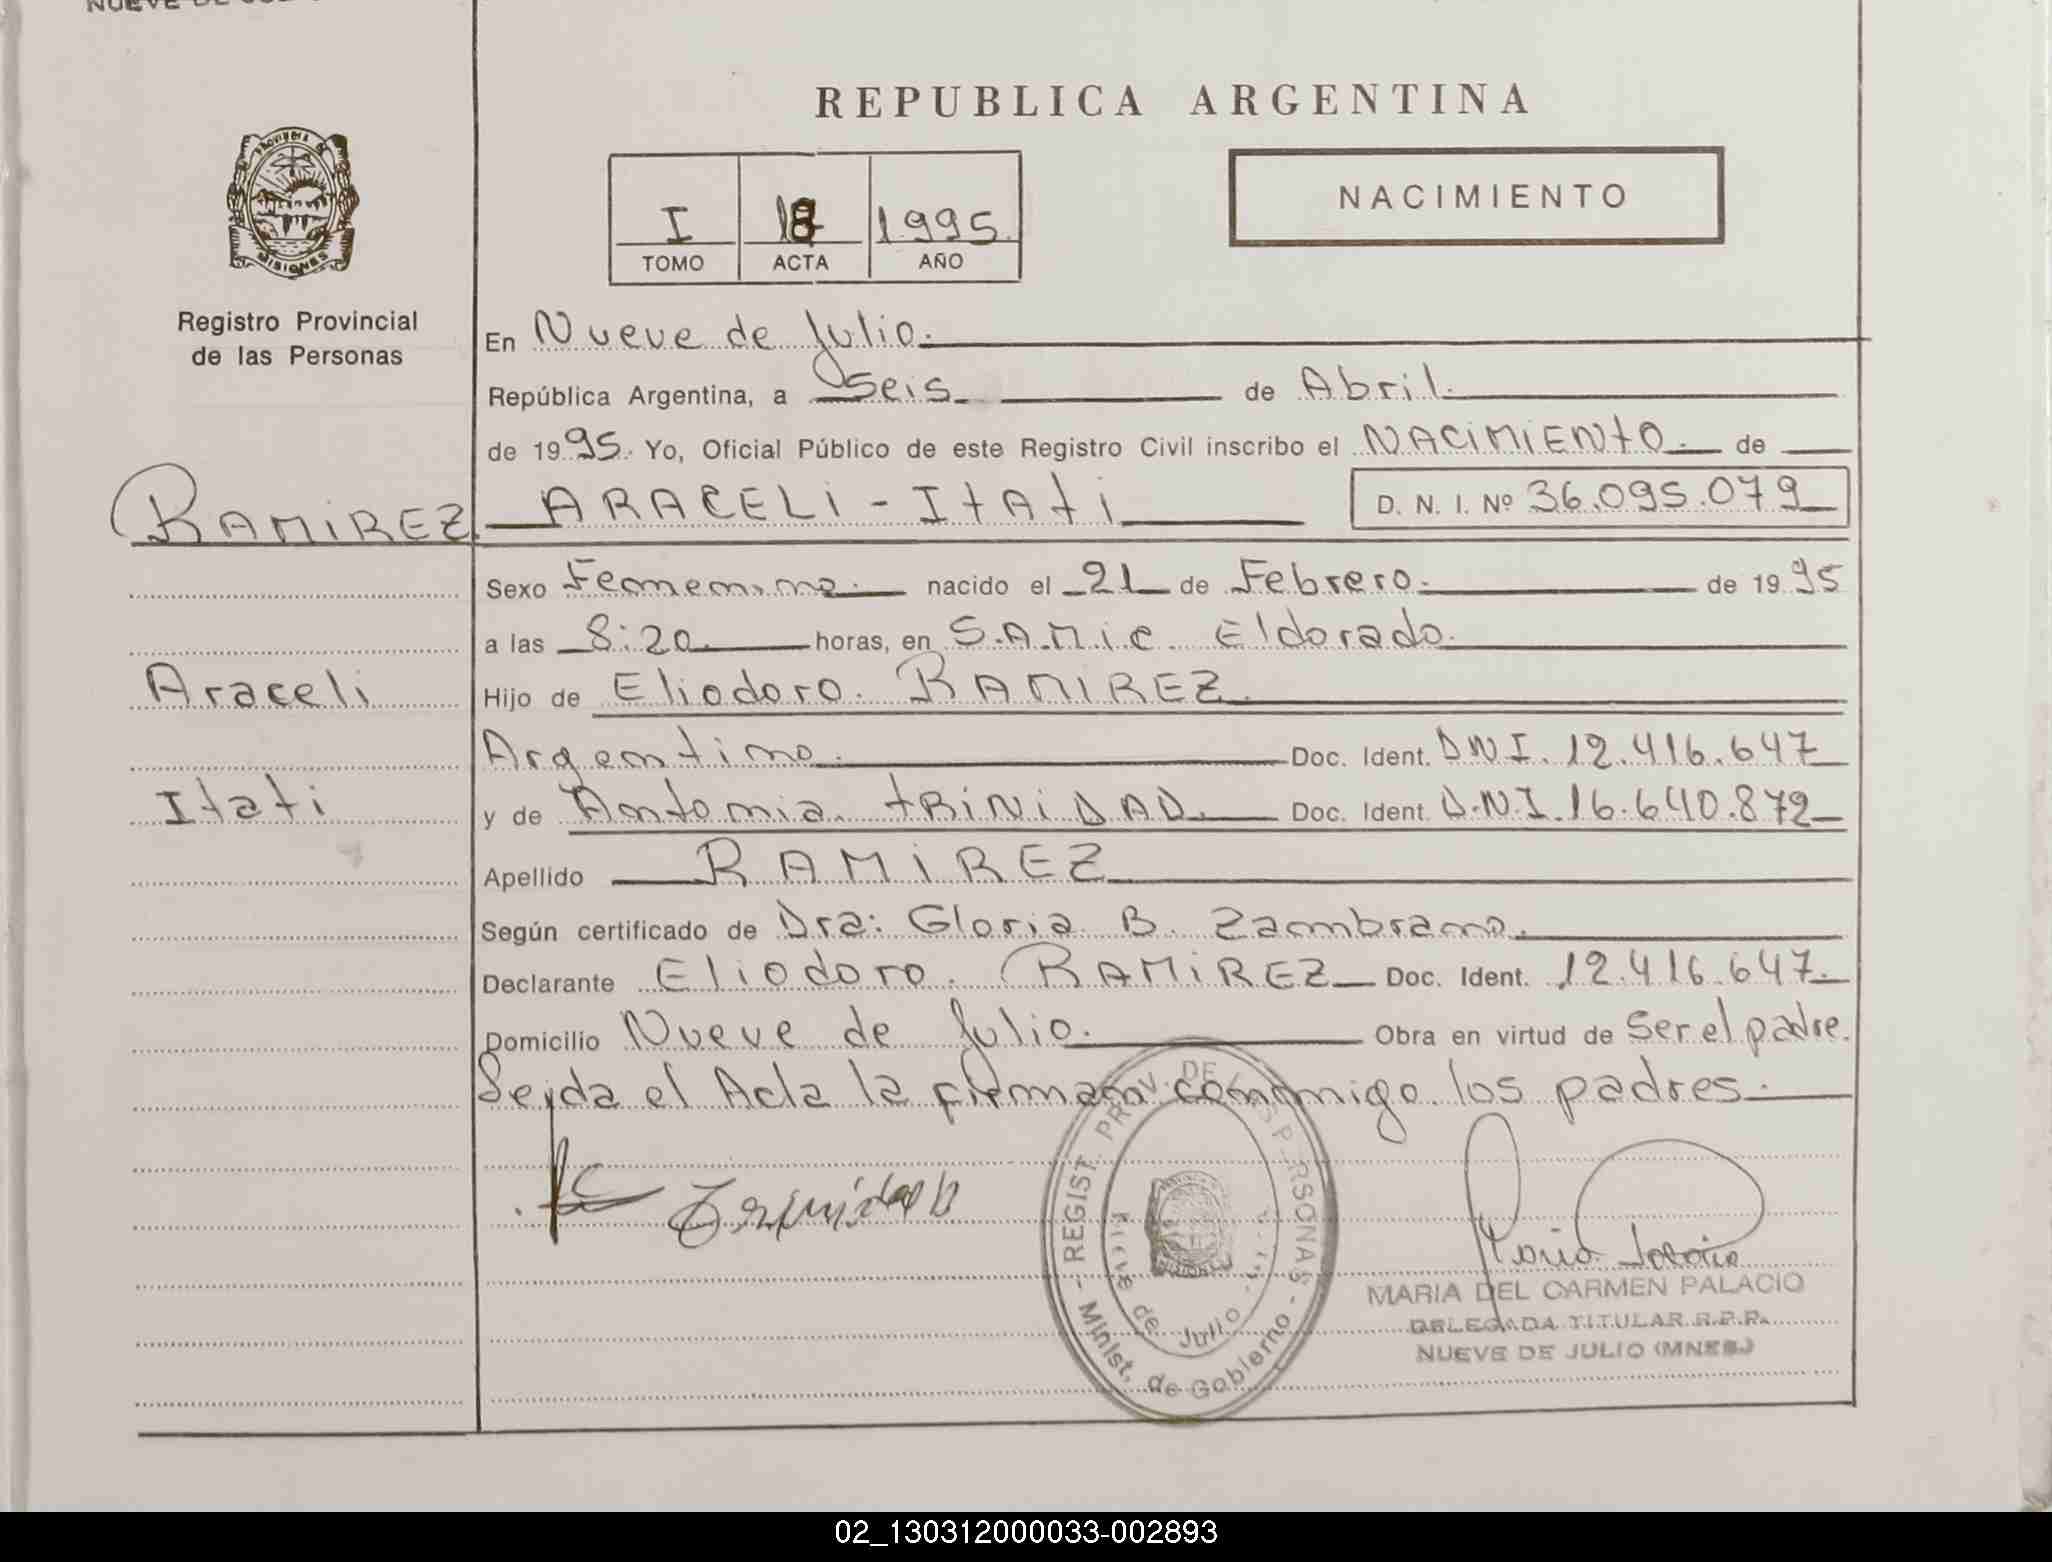 REPUBLICA ARGENTINA
PROVINCIA DE
MISIONES
I 18 1995
TOMO ACTA AÑO
NACIMIENTO
Registro Provincial
de las Personas
En Nueve de Julio.
República Argentina, a Seis de Abril.
de 1995. Yo, Oficial Público de este Registro Civil inscribo el NACIMIENTO. de
RAMIREZ ARACELI - Itati D. N. I. Nº 36.095.079
Sexo Femenino. nacido el 21 de Febrero. de 1995
a las 8:20 horas, en S.A.M.i.c. Eldorado.
Araceli Hijo de Eliodoro. RAMIREZ.
Argentino. Doc. Ident. DNI. 12.416.647
Itati y de Antonia. tRINIDAD. Doc. Ident. D.N.I. 16.640.872
Apellido RAMIREZ
Según certificado de Dra: Gloria B. Zambrano.
Declarante Eliodoro. RAMIREZ Doc. Ident. 12.416.647.
Domicilio Nueve de Julio. Obra en virtud de Ser el padre.
Leida el Acta la firman conmigo los padres.
REGIST. PROV. DE LAS PERSONAS
Nueve de Julio
Minist. de Gobierno
MARIA DEL CARMEN PALACIO
DELEGADA TITULAR R.P.P.
NUEVE DE JULIO (MNES.)
02_130312000033-002893